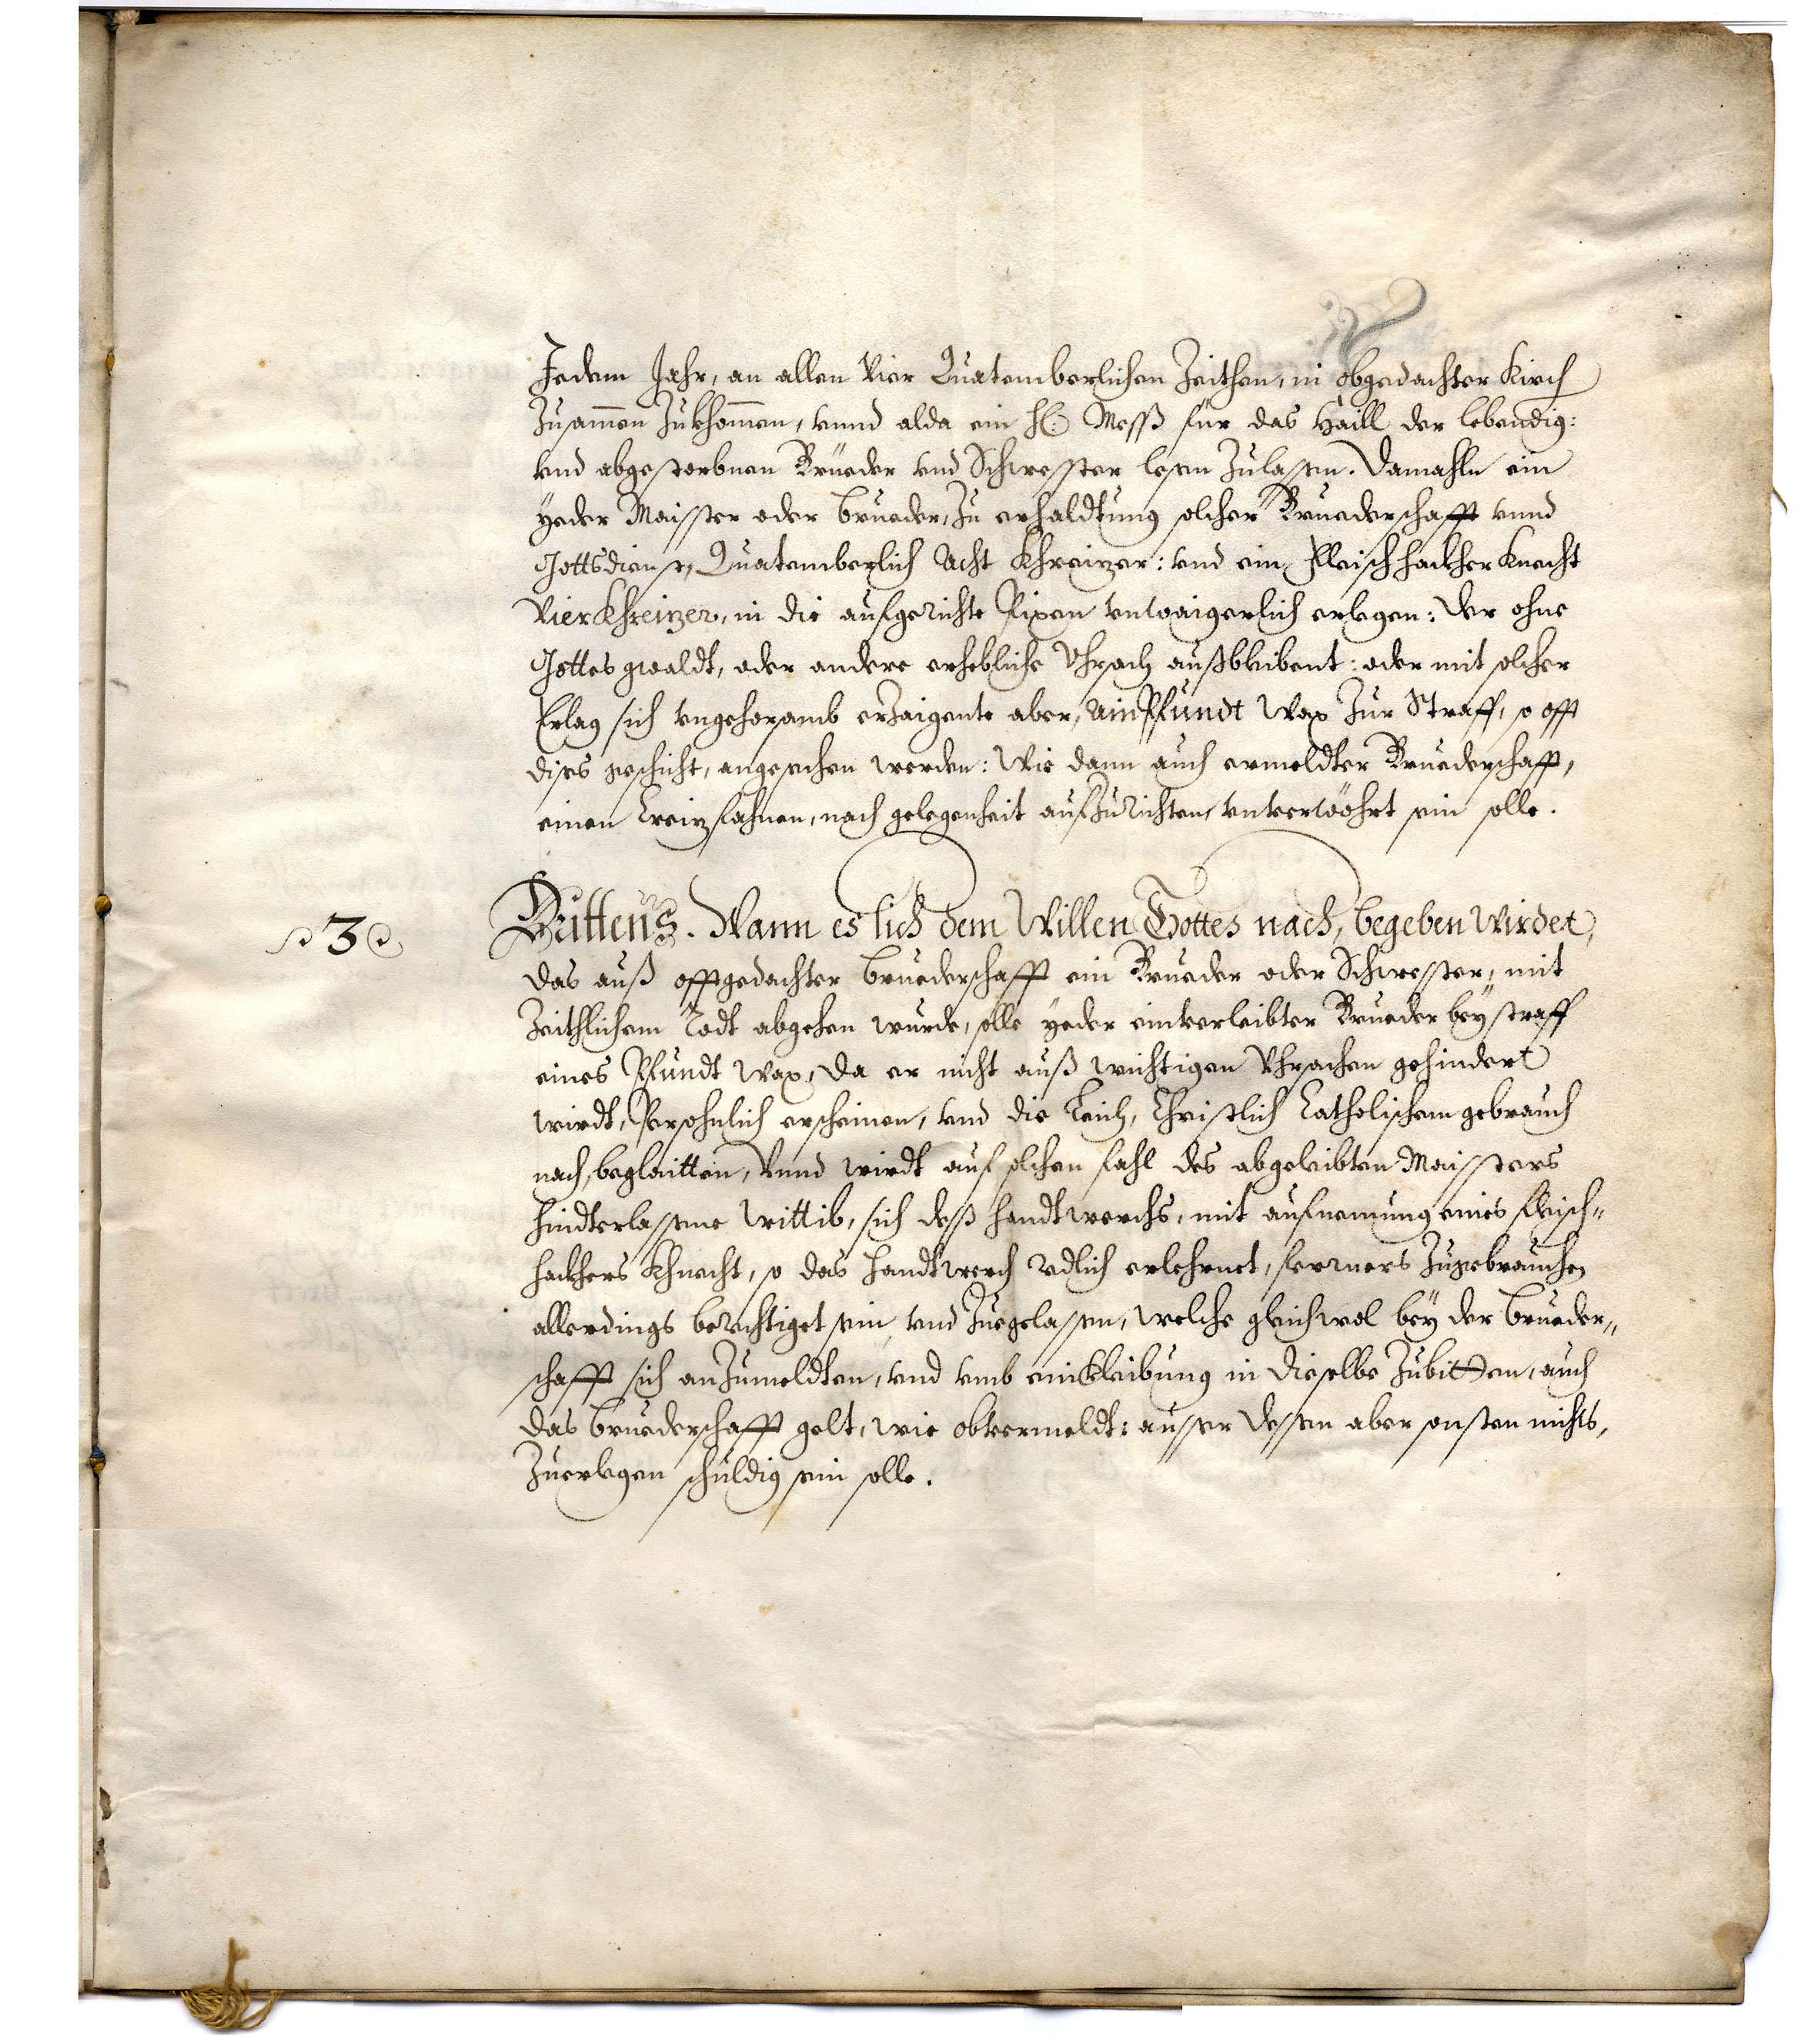 Jedem Jahr, an allen Vier Quatemberlichen Zeithen, in obgedachter Kirch
Zusam̄en Zukhom̄en, vnnd alda ein H: Mesß für das Haill der lebendig:
vnd abgestorbnen Brüeder vnd Schwester lesen Zulassen. Damahln ein
yeder Maister oder Brueder, Zu erhaldtung solcher Bruederschafft vnnd
Gottsdienst, Quatemberlich Acht Khreizer: vnd ein Fleischhackher Knecht
Vier Khreizer, in die aufgerichte Pixen vnwaigerlich erlegen: Der ohne
Gottes gwaldt, oder andere erhebliche Vhrsach außbleibent: oder mit solcher
Erlag sich vngehoramb erzaigente aber, Ain Pfundt Wax Zur Straff, so offt
dises geschicht, angesechen werden: Wie dann auch ermeldter Bruederschafft,
einen Creizfahnen, nach gelegenheit aufzurichten, vnverwöhrt sein solle.
3
Drittens. Wann es sich dem Willen Gottes nach, begeben wirdet,
das auß offtgedachter Bruederschafft ein Brueder oder Schwester, mit
Zeithlichem Todt abgehen wurde, solle yeder einverleibter Brueder bey straff
eines Pfundt Wax, da er nicht auß wichtigen Vhrsachen gehindert
wirdt, Persohnlich erscheinen, vnd die Leich, Christlich Catholischem gebrauch
nach, beglaitten, Vnnd wirdt auf solchen fahl des abgeleibten Maisters
hindterlassene Wittib, sich deß Handtwerchs, mit aufnemung eines fleisch„
hackhers Khnecht, so das Handtwerch redlich erlehrnet, ferners Zugebrauchen
allerdings berechtiget sein, vnd Zuegelassen, welche gleichwol bey der Brueder„
schafft sich anzumeldten, vnd vmb einkleibung in dieselbe Zubitten, auch
das Bruederschafft gelt, wie obvermeldt: ausser dessen aber sonsten nichts,
Zuerlegen schuldig sein solle.